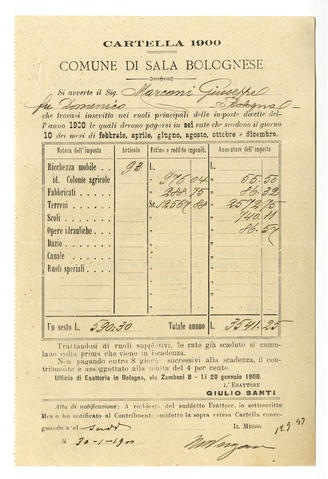 CARTELLA 1900
COMUNE DI SALA BOLOGNESE
Si avverte il Sig. Marconi Giuseppe
fu Domenico Bologna
che trovasi inscritto nei ruoli principali delle imposte dirette del-
l'anno 1900 le quali devono pagarsi in sei rate che scadono il giorno
10 dei mesi di febbraio, aprile, giugno, agosto, ottobre e dicembre.
Natura dell'imposta Articolo Estimo o reddito imponib. Ammontare dell'imposta
Ricchezza mobile . . 93 L. L.
id. Colonie agricole 976.04
Fabbricati . . . . 86.32
Terreni . . . . . 2572.75
Scoli . . . . . . 740.11
Opere idrauliche . . 86.57
Dazio . . . . . .
Canale . . . . .
Ruoli speciali . . .
Un sesto L. 590.30 Totale annuo L. 3541.25
Trattandosi di ruoli suppletivi, le rate già scadute si cumu-
lano colla prima che viene in iscadenza.
Non pagando entro 8 giorni successivi alla scadenza, il con-
tribuente è assoggettato alla multa del 4 per cento.
Ufficio di Esattoria in Bologna, via Zamboni 8 - Li 20 gennaio 1900.
L'ESATTORE
GIULIO SANTI
Atto di notificazione: A richiesta del suddetto Esattore, io sottoscritto
Messo ho notificato al Contribuente suddetto la sopra estesa Cartella conse-
gnandola al
li 20-1-900
IL MESSO